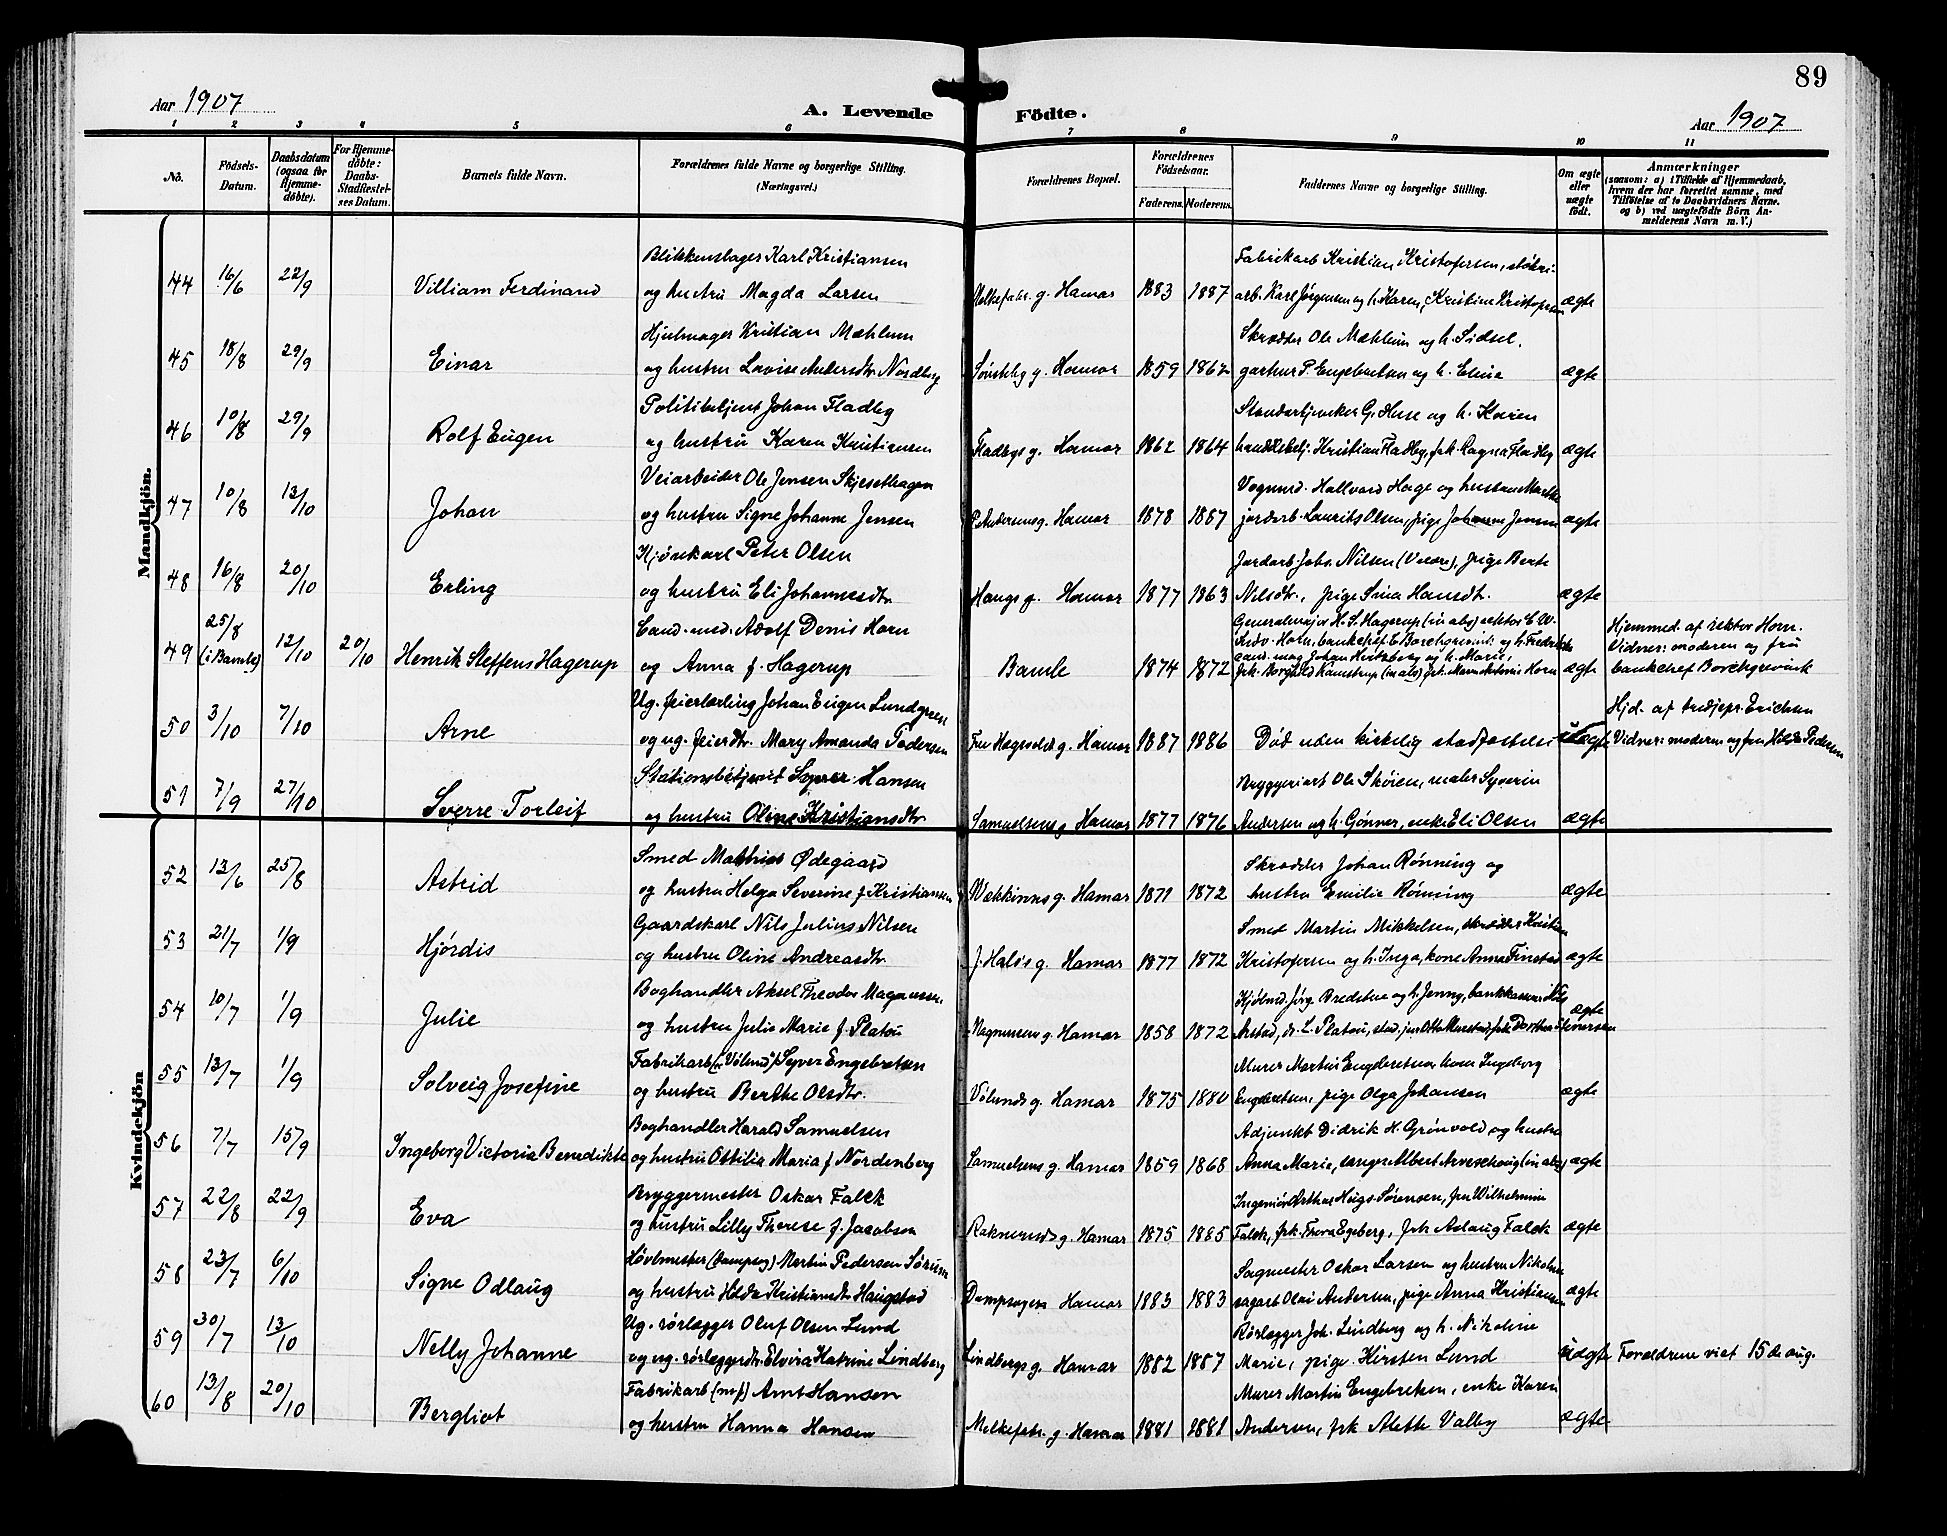 89
Aar 1907
A. Levende Födte.
Aar 1907
1 2 3 4 5 6 7 8 9 10 11
No.
Födsels-Datum.
Daabsdatum (ogsaa for Hjemmedöbte).
For Hjemmedöbte: Daabs-Stadfæstelses Datum.
Barnets fulde Navn.
Forældrenes fulde Navne og borgerlige Stilling. (Næringsvei.)
Forældrenes Bopæl.
Forældrenes Födselsaar.
Faderens. Moderens.
Faddernes Navne og borgerlige Stilling.
Om ægte eller uægte födt.
Anmærkninger
(saasom: a) i Tilfælde af Hjemmedaab, hvem der har forrettet samme, med Tilföielse af to Daabsvidners Navne, og b) ved uægtefödte Börn Anmelderens Navn m. V.)
Mandkjön.
Blikkenslager Karl Kristiansen Fabrikarb Kristian Kristofersen,
44 16/6 22/9 Villiam Ferdinand og hustru Magda Larsen Melkefabr. g. Hamar 1883 1887 arb. Karl Jørgensen og h. Karen, Kristine Kristofersen ægte
Hjulmager Kristian Mæhlum Skrædder Ole Mæhlum og h. Sidsel,
45 18/8 29/9 Einar og hustru Lovise Andersdtr Nordberg g. Hamar 1859 1862 gartner P. Engebretsen og h. Elina ægte
Politibetjent Johan Fladby G. Huse og h. Karen
46 10/8 29/9 Rolf Eugen og hustru Karen Kristiansen Fladbys g. Hamar 1862 1864 handelsbetj. Kristian Fladby, frk. Ragna Fladby ægte
Veiarbeider Ole Jensen Skjesethagen Vognmd. Hallvard Hage og hustru Marthe
47 10/8 13/10 Johan og hustru Signe Johanne Jensen P. Andersens g. Hamar 1878 1887 jordarb. Laurits Olsen, pige Johanne Jensen ægte
Kjørekarl Peter Olsen Jordarb. Johs. Nilsen, pige Berte
48 16/8 20/10 Erling og hustru Eli Johannesdtr. Haugs g. Hamar 1877 1863 Nilsdtr., pige Sina Hansdtr. ægte
25/8 Cand. med. Adolf Denis Horn Generalmajor H. S. Hagerup (in abs) rektor E. W.
49 (i Bamle) 12/10 20/10 Henrik Steffens Hagerup og Anna f. Hagerup Bamle 1874 1872 Horn, bankchef E. Borchgrevink og h. Fredrikke cand. mag. Johan Hertzberg og h. Marie, ægte
Hjemmed. af rektor Horn. Vidner: moderen og fru bankchef Borchgrevink
Ug. feierlærling Johan Eugen Lundgreen Hjd. af tredjepr. Erichsen
50 3/10 7/10 Arne og ug. feierdtr. Mary Amanda Pedersen Fru Hægsvolds g. Hamar 1887 1886 Død uden kirkelig stadfæstelse uægte Vidner: moderen og fru Hilda Pedersen
Stationsbetjent Syver Hansen Bryggeriarb Ole Skøien, maler Syverin
51 7/9 27/10 Sverre Torleif og hustru Oline Kristiansdtr Samuelsens g Hamar 1877 1876 Andersen og h. Gønner, enke Eli Olsen ægte
Kvindekjön
Smed Mathias Ødegaard Skrædder Johan Rønning og
52 13/6 25/8 Astrid og hustru Helga Severine f. Kristiansen Wækkinns g. Hamar 1871 1872 hustru Emilie Rønning ægte
Gaardskarl Nils Julius Nilsen Smed Martin Mikkelsen, skrædder Kristian
53 21/7 1/9 Hjørdis og hustru Oline Andreasdtr. J. Hals's g. Hamar 1877 1872 Kristofersen og h. Inga, kone Anna Finstad ægte
Boghandler Aksel Theodor Magnussen Hjulmd. Jørg. Bredstue og h. Jenny, bankkasserer Nils
54 10/7 1/9 Julie og hustru Julie Marie f. Platou Magnussens g. Hamar 1858 1872 Arstad, dr. L. Platou, ægte
Fabrikarb (Vølund) Syver Engebretsen Murer Martin Engebretsen, kone Ingeborg
55 13/7 1/9 Solveig Josefine og hustru Berthe Olsdtr. Vølunds g. Hamar 1875 1880 Engebretsen, pige Olga Johansen ægte
Boghandler Harald Samuelsen Adjunkt Didrik H. Grønvold og hustru
56 7/7 15/9 Ingeborg Victoria Benedikte og hustru Ottilia Maria f. Nordenberg Samuelsens g. Hamar 1859 1868 Anna Marie, sanger Albert Arveschoug (in abs) ægte
Bryggermester Oskar Falck Ingeniør Arthur Høigs-Sørensen, fru Wilhelmine
57 22/8 22/9 Eva og hustru Lilly Therese f. Jacobsen Roknesods g. Hamar 1875 1885 Falck, frk. Thora Egeberg, frk Aslaug Falck ægte
Høvlmester (dampsag) Martin Pedersen Sørum Sagmester Oskar Larsen og hustru Nikoline
58 23/7 6/10 Signe Odlaug og hustru Hilda Kristiansdtr Haugstad Dampsagen Hamar 1883 1883 sagarb Olai Andersen, pige Anna Kristiansen ægte
Ug. rørlægger Oluf Olsen Lund Rørlægger Joh. Lindberg og h. Nikoline
59 30/7 13/10 Nelly Johanne og ug. rørlæggerdtr. Elvira Katrine Lindberg Lindbergs g. Hamar 1882 1887 Marie, pige Kirsten Lund uægte Forældrene viet 15de aug.
Fabrikarb (mf) Arnt Hansen Murer Martin Engebretsen, enke Karen
60 13/8 20/10 Bergliot og hustru Hanna Hansen Melkefabr. g. Hamar 1881 1881 Andersen, frk Alette Valby ægte